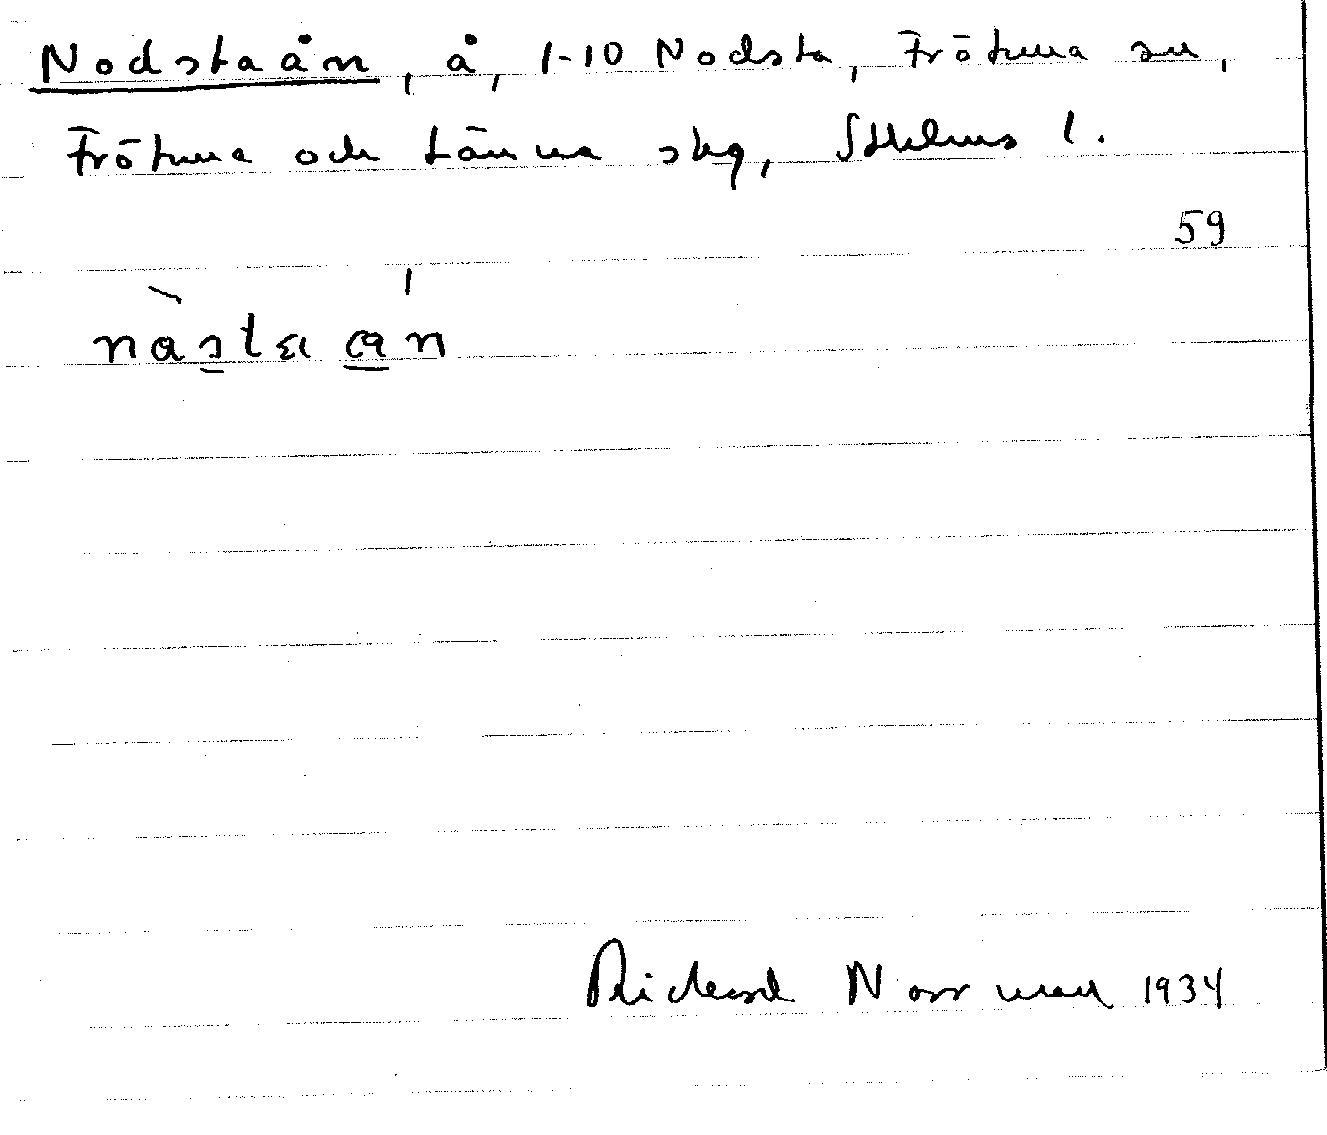 Nodstaån, å, 1-10 Nodsta, Frötuna sn,
Frötuna och Länna skg, Sthlms l.
59
Rickard Norrman 1934